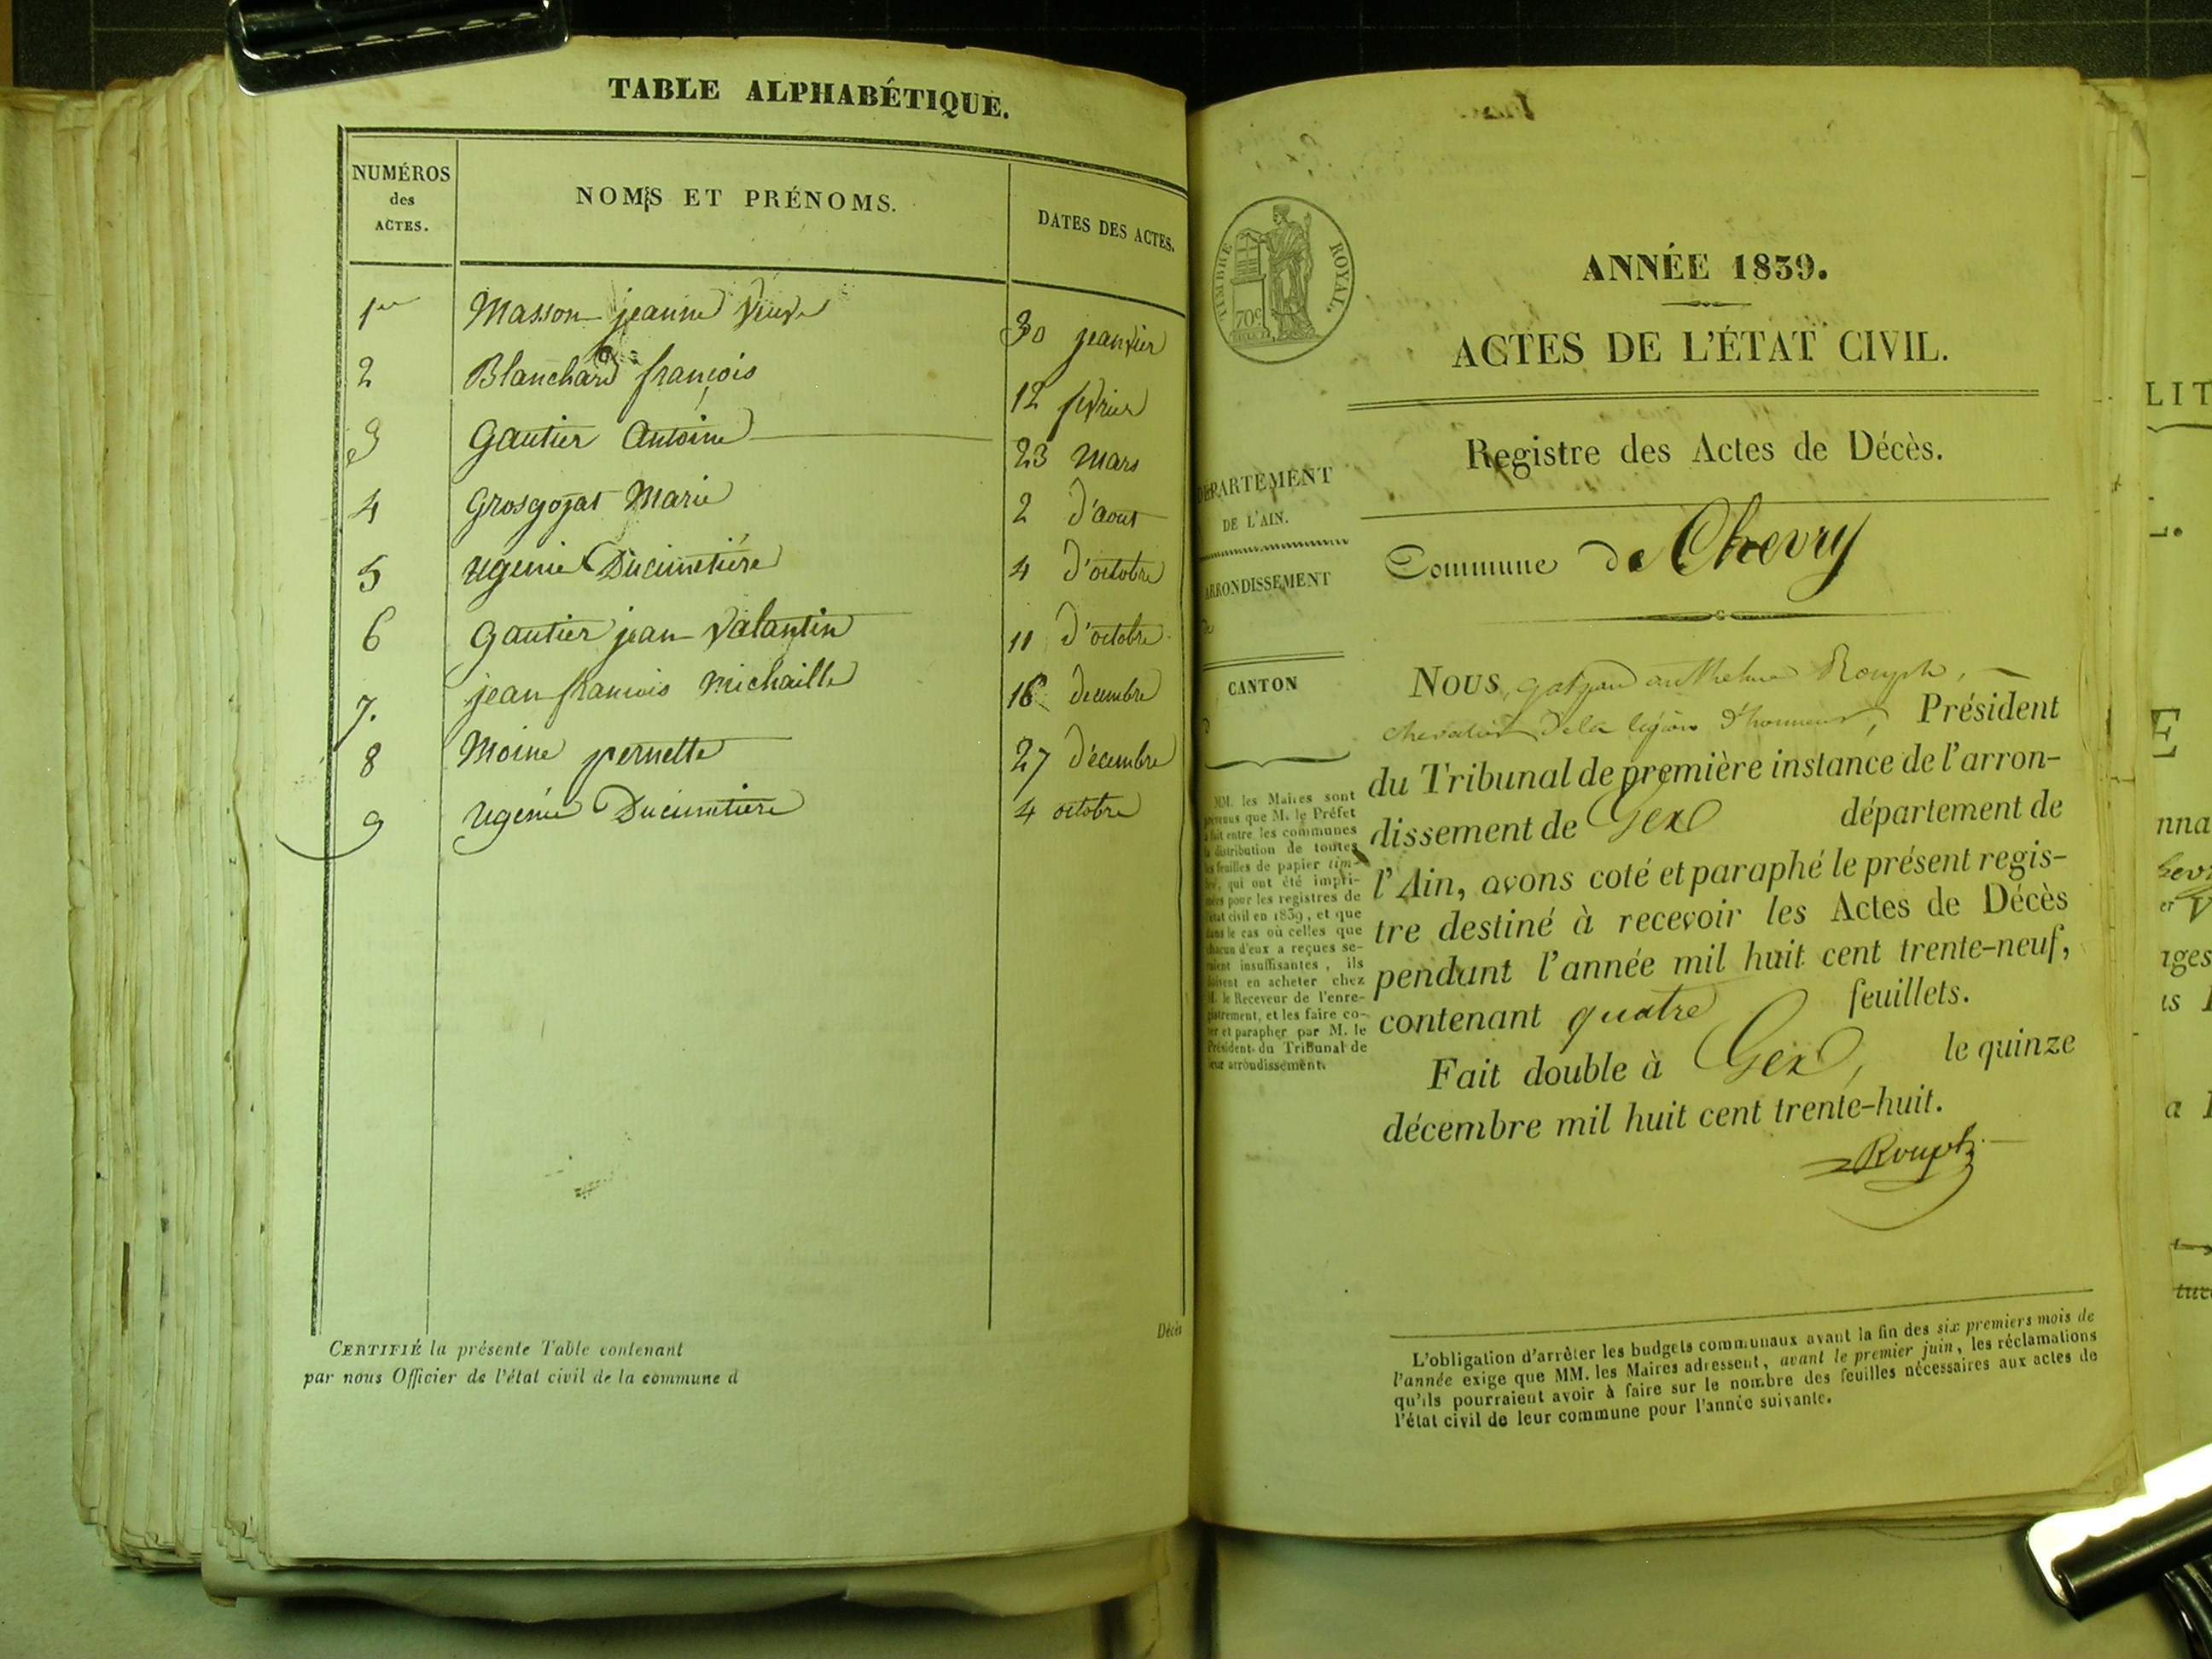 TABLE ALPHABÉTIQUE.
NUMÉROS des ACTES. NOMS ET PRÉNOMS. DATES DES ACTES.
1er Masson jeanne veuve 30 jeanvier
2 Blanchard françois 12 fevrier
3 Gautier Antoine 23 Mars
4 Grosgojat Marie 2 d'aout
5 ugenie Ducimetière 4 d'octobre
6 Gautier jean Valantin 11 d'octobre
7. jean francois Michaille 16 decembre
8 Moine pernette 27 décembre
9 ugénie Ducimetiere 4 octobre
Décès
CERTIFIÉ la présente Table contenant
par nous Officier de l'état civil de la commune d
TIMBRE ROYAL.
70c
ANNÉE 1839.
ACTES DE L'ÉTAT CIVIL.
Registre des Actes de Décès.
DÉPARTEMENT
DE L'AIN.
ARRONDISSEMENT
de
CANTON
d
MM. les Maires sont
prévenus que M. le Préfet
a fait entre les communes
la distribution de toutes
les feuilles de papier tim-
bré, qui ont été impri-
mées pour les registres de
l'état civil en 1839, et que
dans le cas où celles que
chacun d'eux a reçues se-
raient insuffisantes, ils
doivent en acheter chez
M. le Receveur de l'enre-
gistrement, et les faire co-
ter et parapher par M. le
Président du Tribunal de
leur arrondissement.
Commune de Chevry
NOUS, gaspard anthelme Rouph,
chevalier de la légion d'honneur, Président
du Tribunal de première instance de l'arron-
dissement de Gex département de
l'Ain, avons coté et paraphé le présent regis-
tre destiné à recevoir les Actes de Décès
pendant l'année mil huit cent trente-neuf,
contenant quatre feuillets.
Fait double à Gex, le quinze
décembre mil huit cent trente-huit.
Rouph
L'obligation d'arrêter les budgets communaux avant la fin des six premiers mois de
l'année exige que MM. les Maires adressent, avant le premier juin, les réclamations
qu'ils pourraient avoir à faire sur le nombre des feuilles nécessaires aux actes de
l'état civil de leur commune pour l'année suivante.
LIT
E
nna